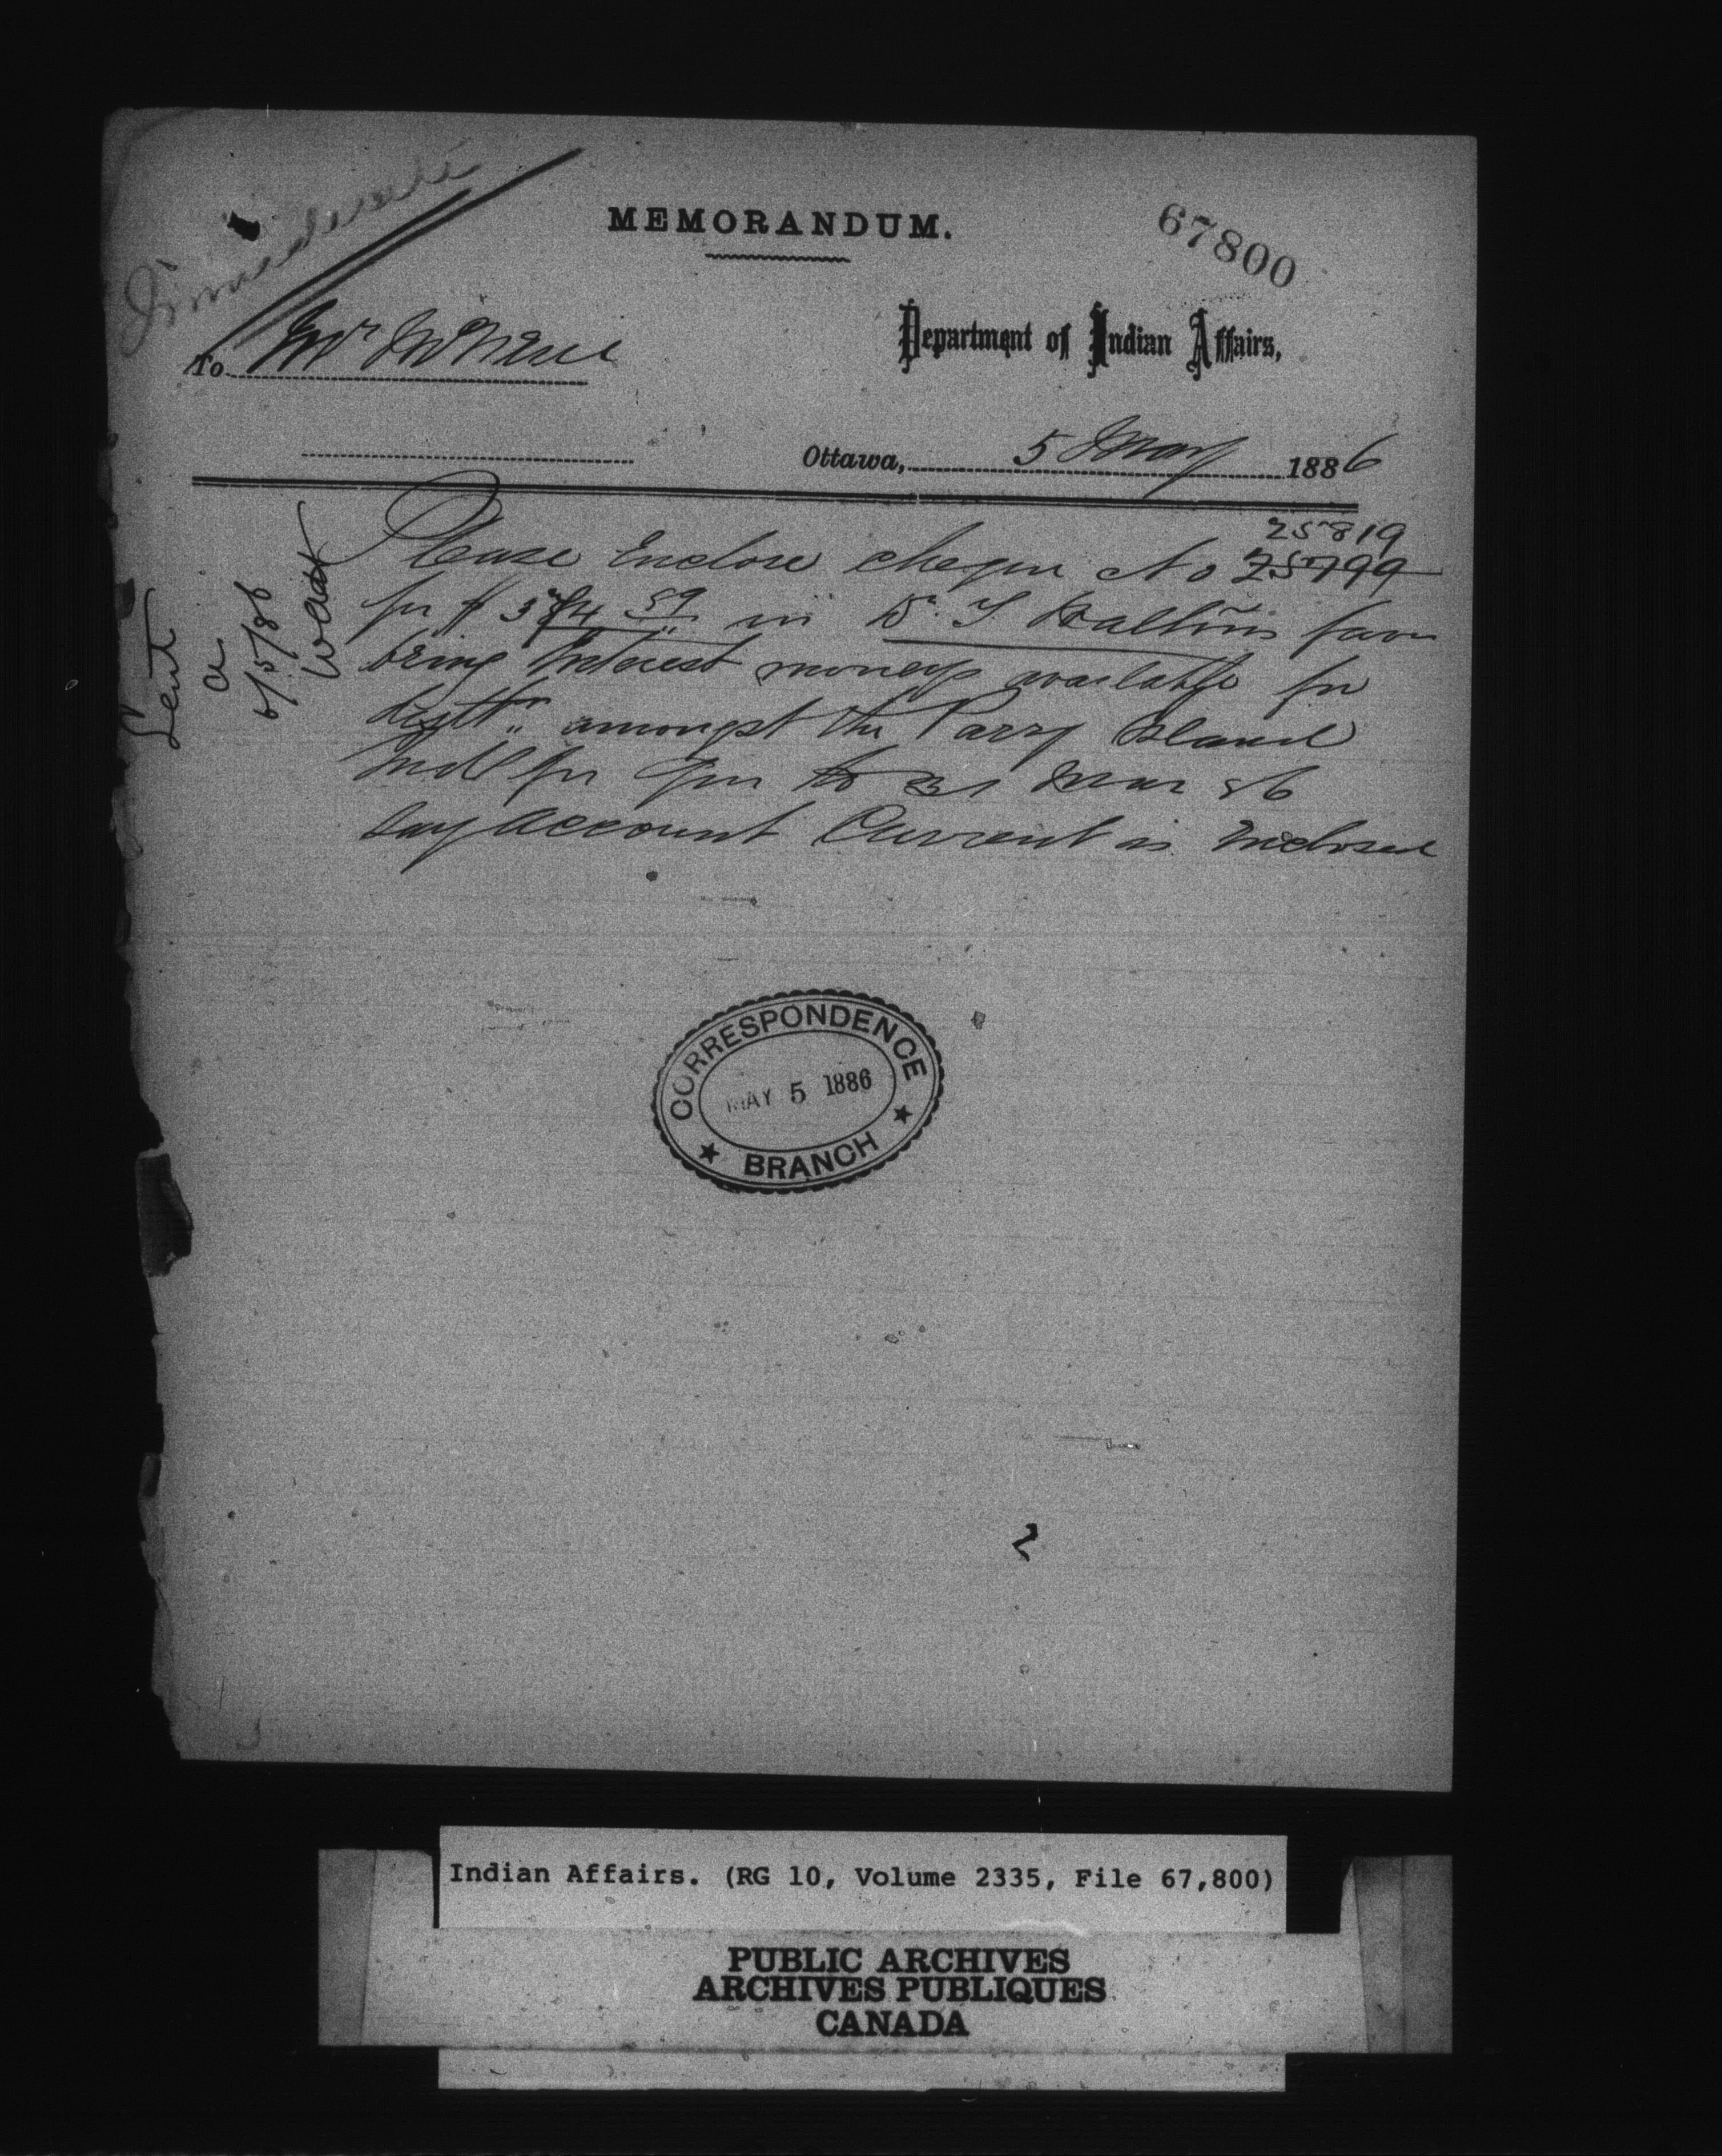 Immediate
MEMORANDUM.
67800
To Mr McNeil
Department of Indian Affairs,
Ottawa, 5 May 1886
25819
Please Enclose cheque No 25799
for $ 59 in Dr. T. Walton's favor
being Interest moneys available for
distn amongst the Parry Island
Inds for qr to 31 Mar 86
say account Current is Enclosed
Sent
6/5/86
CORRESPONDENCE
MAY 5 1886
BRANCH
2
Indian Affairs. (RG 10, Volume 2335, File 67,800)
PUBLIC ARCHIVES
ARCHIVES PUBLIQUES
CANADA